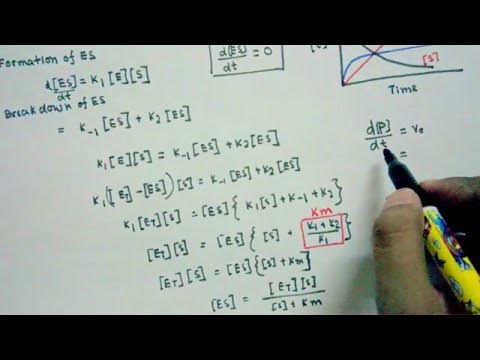 Formation of ES
d[ES]/dt = K₁[E][S]
Breakdown of ES
= K₋₁[ES] + K₂[ES]
d[ES]/dt = 0
[S]
Time
K₁[E][S] = K₋₁[ES] + K₂[ES]
K₁([ET] - [ES])[S] = K₋₁[ES] + K₂[ES]
K₁[ET][S] = [ES]{K₁[S] + K₋₁ + K₂}
Km
[ET][S] = [ES]{[S] + (K₁ + K₂)/K₁}
[ET][S] = [ES]{[S] + Km}
[ES] = [ET][S]/[S] + Km
d[P]/dt = V₀
=